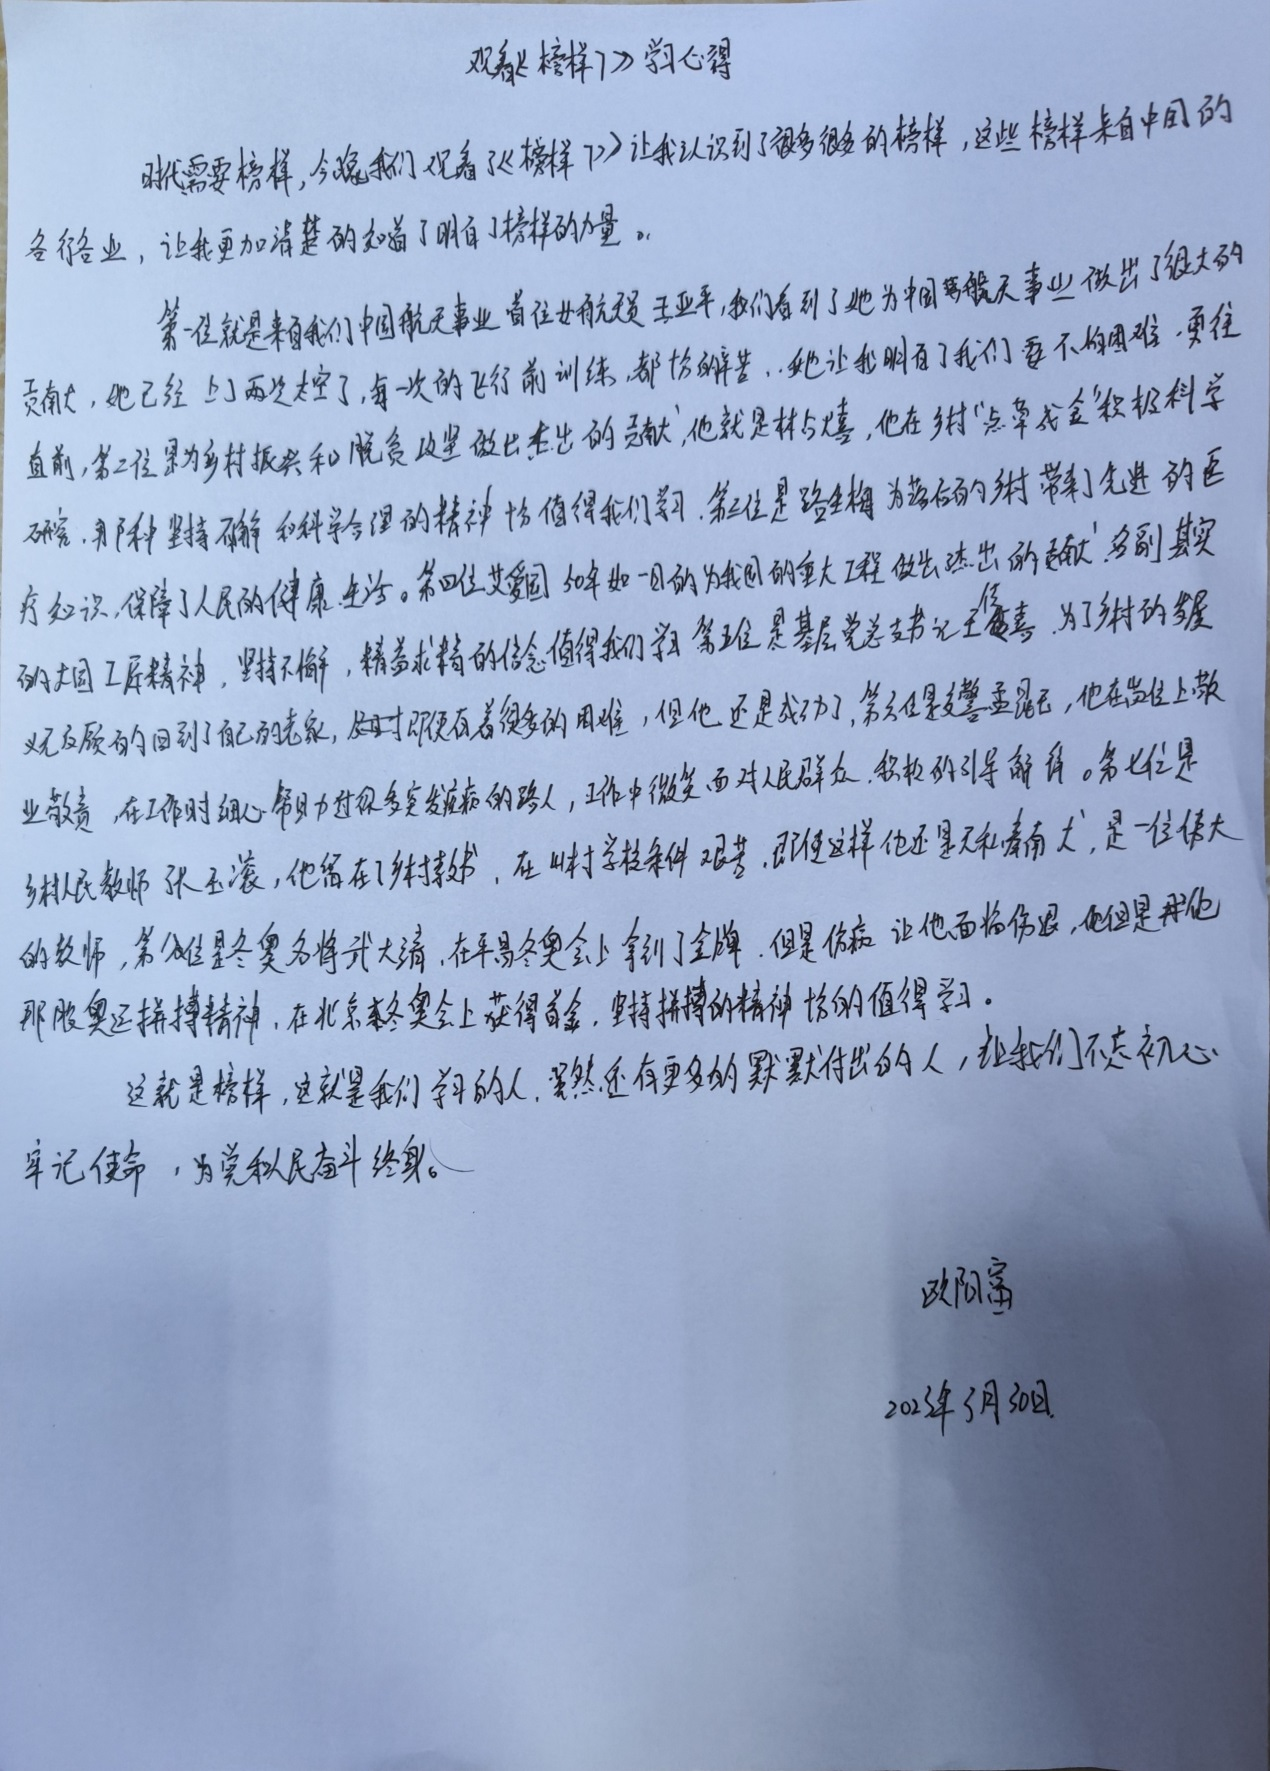 观看《榜样7》学习心得
时代需要榜样，今晚我们观看了《榜样7》让我认识到了很多很多的榜样，这些榜样来自中国的
各行各业，让我更加清楚的知道了明白了榜样的力量。
第一位就是来自我们中国航天事业首位女航天员王亚平，我们看到了她为中国航天事业做出了很大的
贡献，她已经上了两次太空了，每一次的飞行前训练，都十分辛苦，她让我明白了我们要不怕困难，勇往
直前，第二位是为乡村振兴和脱贫攻坚做出杰出的贡献，他就是林占熺，他在乡村“点草成金”积极科学
研究，那种坚持不懈和科学合理的精神十分值得我们学习，第三位是路生梅为落后的乡村带来了先进的医
疗知识，保障了人民的健康生活。第四位艾爱国50年如一日的为我国的重大工程做出杰出的贡献，名副其实
的大国工匠精神，坚持不懈，精益求精的信念值得我们学习 第五位是基层党总支书记王传喜，为了乡村的发展
义无反顾的回到了自己的老家，及时即便有着很多的困难，但他还是成功了，第六位是交警孟昆玉，他在岗位上敬
业敬责，在工作时细心帮助过很多突发疾病的路人，工作中微笑面对人民群众，积极的引导解释。第七位是
乡村人民教师张玉滚，他留在了乡村教书，在山村学校条件艰苦，即使这样他还是无私奉献，是一位伟大
的教师，第八位是冬奥名将武大靖，在平昌冬奥会上拿到了金牌，但是伤病让他面临伤退，但是那他
那股奥运拼搏精神，在北京冬奥会上获得首金，坚持拼搏的精神十分的值得学习。
这就是榜样，这就是我们学习的人，虽然还有更多的默默付出的人，让我们不忘初心
牢记使命，为党和人民奋斗终身。
欧阳富
2023年3月30日